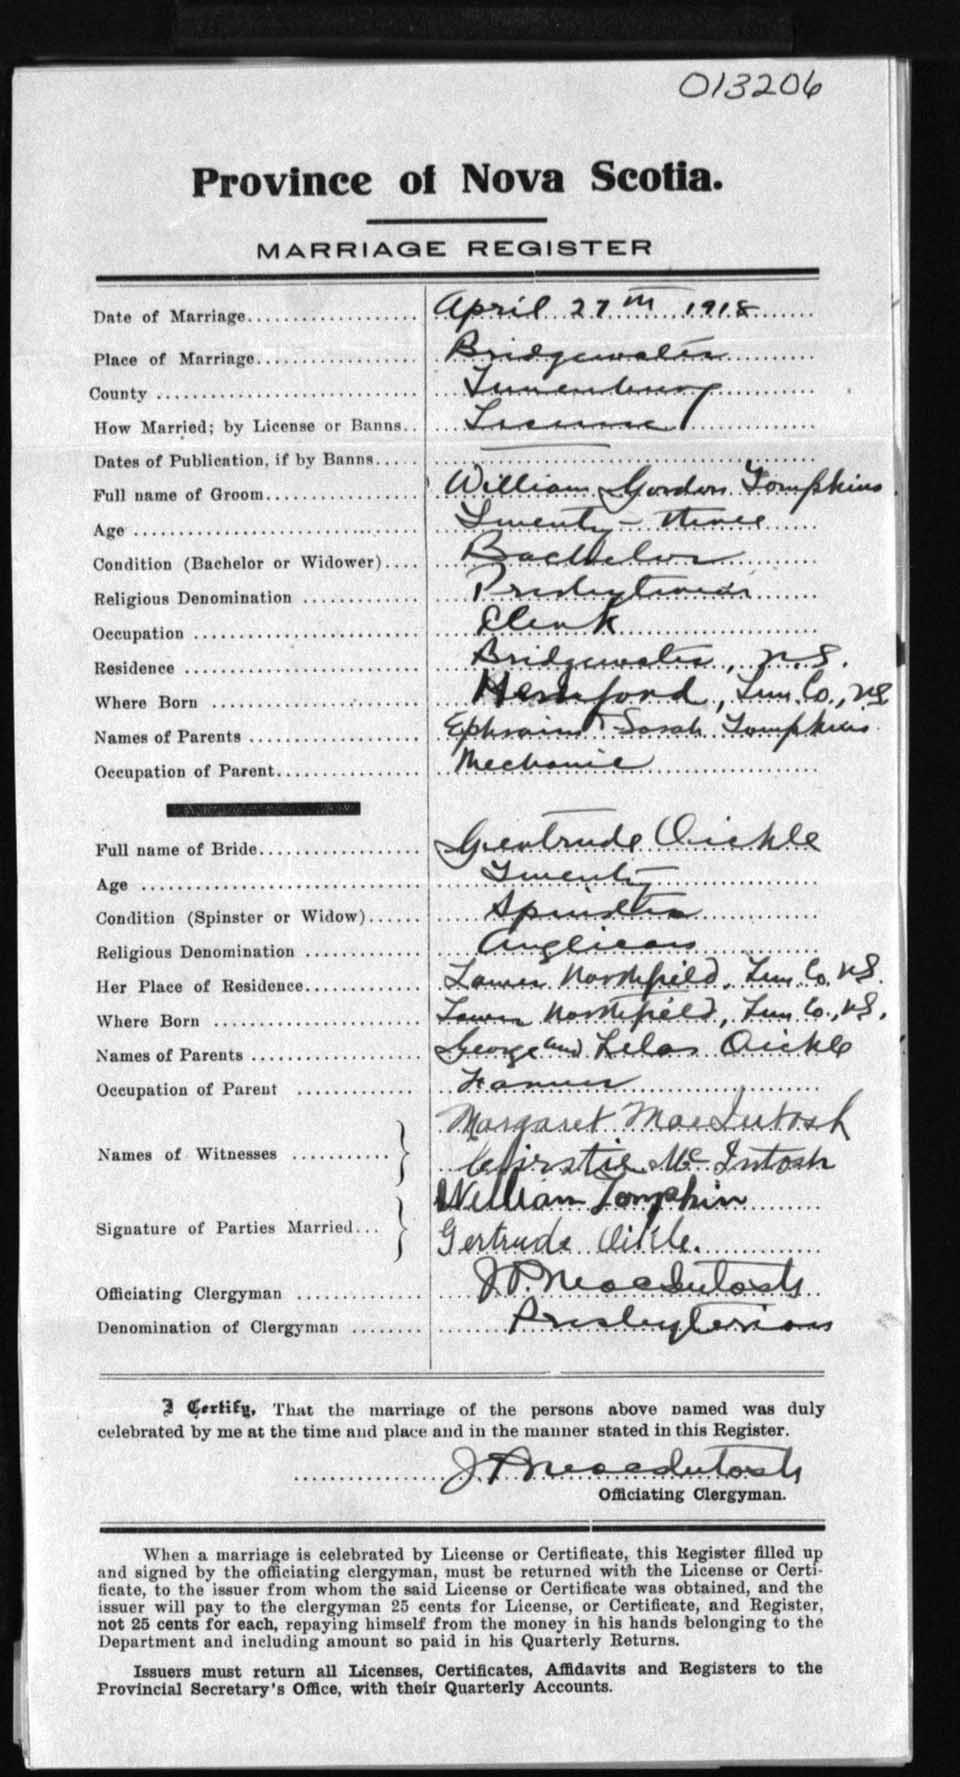 013206
Province of Nova Scotia.
MARRIAGE REGISTER
Date of Marriage.................... April 27th 1918
Place of Marriage................... Bridgewater
County .............................. Lunenburg
How Married; by License or Banns.. License
Dates of Publication, if by Banns..... ——
Full name of Groom.................. William Gordon Tompkins
Age .................................. Twenty-three
Condition (Bachelor or Widower).... Bachelor
Religious Denomination .............. Presbyterian
Occupation .......................... Clerk
Residence ........................... Bridgewater, N.S.
Where Born ......................... Hemford, Lun. Co., NS
Names of Parents .................... Ephraim + Sarah Tompkins
Occupation of Parent................. Mechanic
Full name of Bride................... Gertrude Oickle
Age ................................. Twenty
Condition (Spinster or Widow)...... Spinster
Religious Denomination ............. Anglican
Her Place of Residence.............. Lower Northfield, Lun Co, NS.
Where Born ......................... Lower Northfield, Lun Co., NS.
Names of Parents .................... George and Lelas Oickle
Occupation of Parent ............. Farmer
Names of Witnesses ........... Margaret MacIntosh
Chirstie Mc Intosh
Signature of Parties Married... William Tompkin
Gertrude Oikle.
Officiating Clergyman ............. J. P. MacIntosh
Denomination of Clergyman ........ Presbyterian
I Certify, That the marriage of the persons above named was duly
celebrated by me at the time and place and in the manner stated in this Register.
J P MacIntosh
Officiating Clergyman.
When a marriage is celebrated by License or Certificate, this Register filled up
and signed by the officiating clergyman, must be returned with the License or Certi-
ficate, to the issuer from whom the said License or Certificate was obtained, and the
issuer will pay to the clergyman 25 cents for License, or Certificate, and Register,
not 25 cents for each, repaying himself from the money in his hands belonging to the
Department and including amount so paid in his Quarterly Returns.
Issuers must return all Licenses, Certificates, Affidavits and Registers to the
Provincial Secretary's Office, with their Quarterly Accounts.